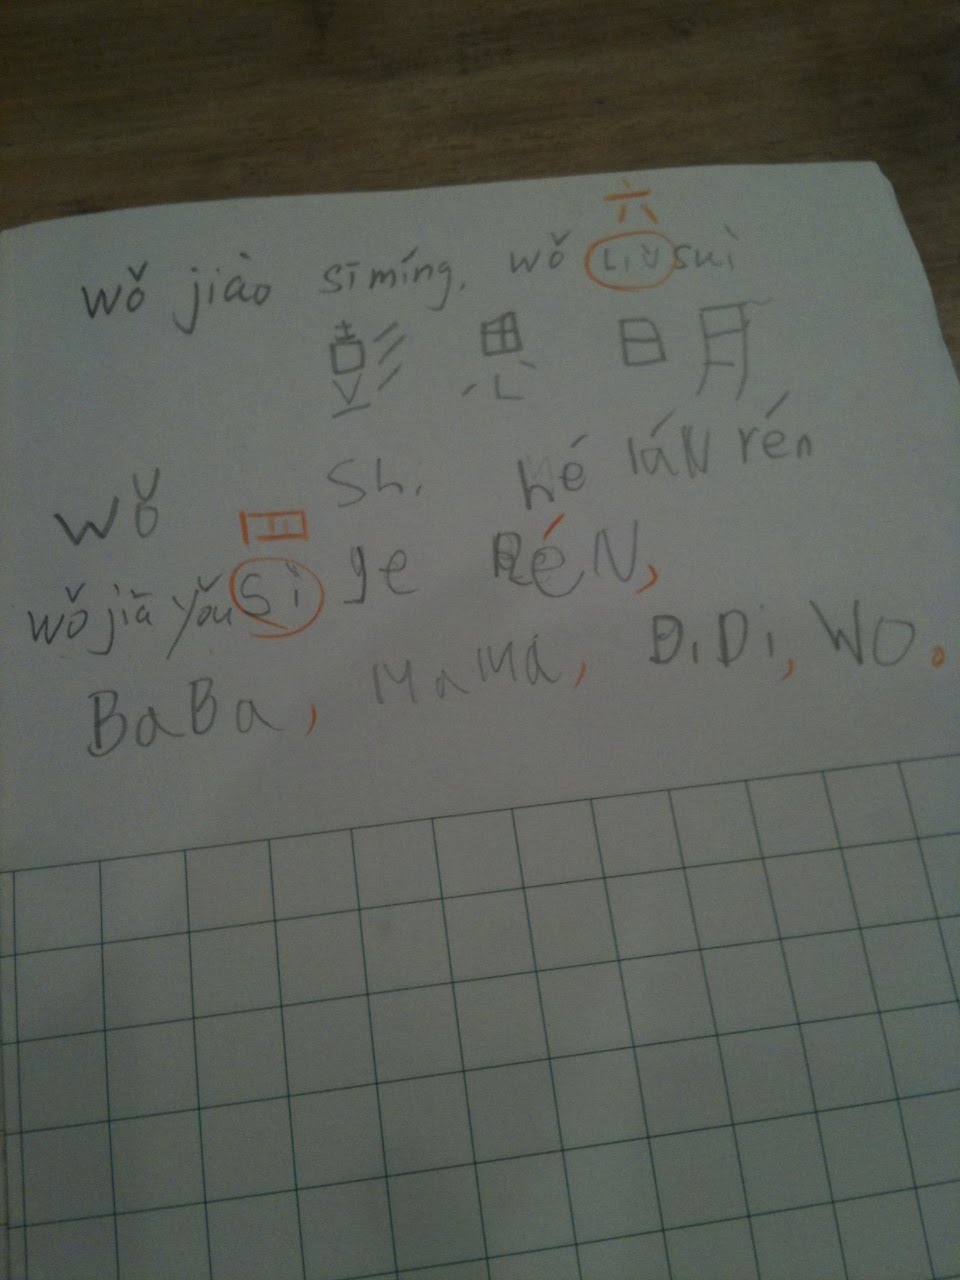 六
wǒ jiào sī míng, wǒ Liù suì
彭 思 明
wǒ Shi hé láN rén
四
wǒ jiā yǒu Sì ge RéN,
BaBa, MaMa, DiDi, WO。